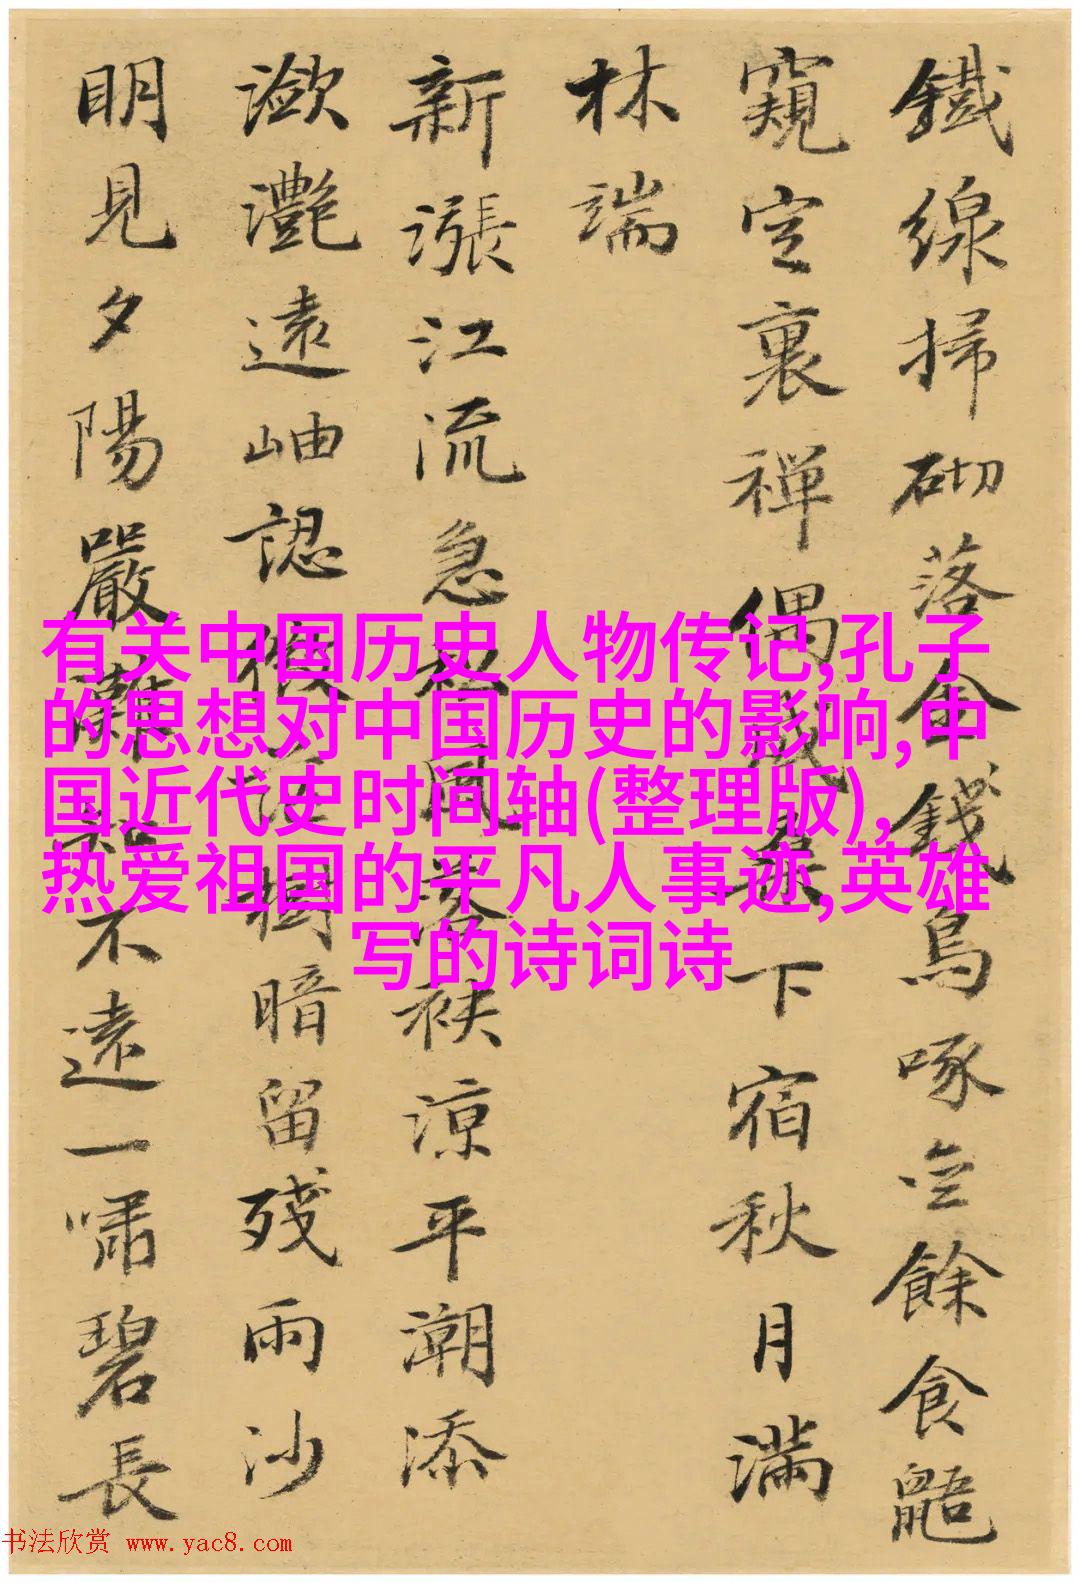 鐵線掃砌落金錢鳥啄餘食鼯
窺定裏禪偶下宿秋月滿
林端
新漲江流急風袂涼平潮添
瀲灩遠岫認微樹暗留殘雨沙
明見夕陽嚴灘不遠一嘯碧長
有关中国历史人物传记,孔子
的思想对中国历史的影响,中
国近代史时间轴(整理版),
热爱祖国的平凡人事迹,英雄
写的诗词诗
书法欣赏 www.yac8.com